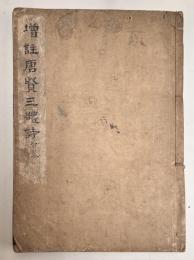 增註唐賢三體詩